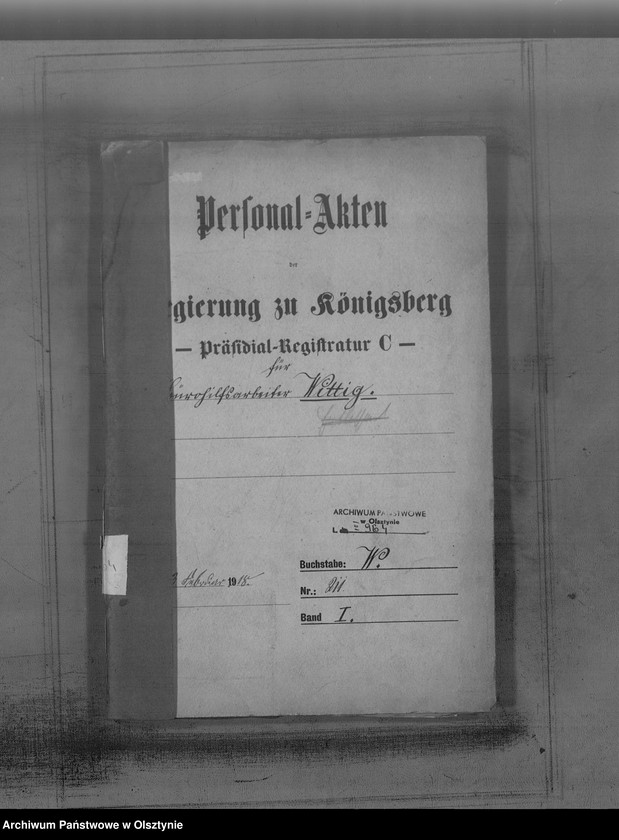 Personal-Akten
der
gierung zu Königsberg
— Präsidial-Registratur C —
für
ürohilfsarbeiter Wittig.
ARCHIWUM PAŃSTWOWE
w Olsztynie
964
Buchstabe: W.
Februar 1918.
Nr.:
Band I.
Archiwum Państwowe w Olsztynie